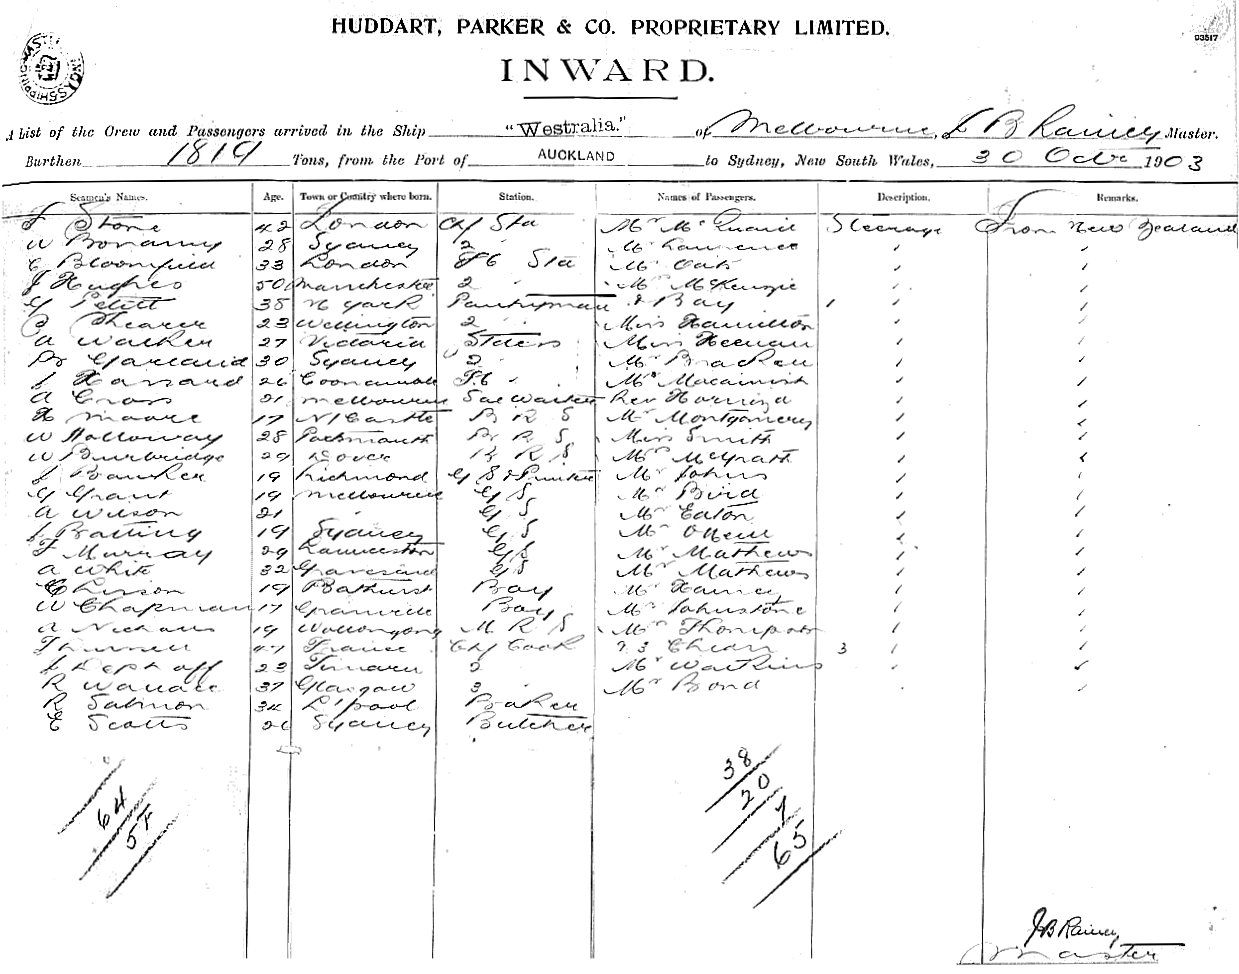 HUDDART, PARKER & CO. PROPRIETARY LIMITED.
03517
INWARD.
A List of the Crew and Passengers arrived in the Ship "Westralia." of Melbourne, J B Rainey Master.
Burthen 1819 Tons, from the Port of AUCKLAND to Sydney, New South Wales, 30 Octr 1903
Seamen's Names. Age. Town or Country where born. Station. Names of Passengers. Description. Remarks.
F Stone 42 London Chf Sta Mr McQuaid Steerage From New Zealand
W Bonamy 28 Sydney 2 Mr Lawrence
C Bloomfield 33 London F C Sta Mr Oats
J Hughes 50 Manchester 2 Mr McKenzie
G Petitt 38 N York Pantryman & Boy 1
Shearer 23 Wellington 2 Miss Hamilton
A Walker 27 Victoria Stders Miss Heenan
Garland 30 Sydney 2 Mr Bracken
J Hassard 26 Coonamble F C Macintosh
A Cross 21 Melbourne Sal Waiter Rev
H Moore 17 N Castle B R S Mr Montgomery
W Holloway 28 Portsmouth B R S Miss Smith
W Burbridge 29 Dover B R S McGrath
J Banker 19 Richmond G S & Printer Mr Johns
G Grant 19 Melbourne G S Mr Bird
A Wilson 21 G S Mr Eaton
J Batting 19 Sydney G S Mr ONeill
F Murray 29 Launceston G S Mr Mathews
A White 32 Gravesend G S Mr Mathews
19 Bathurst Boy Mr
W Chapman 17 Granville Boy Mr Johnstone
A Nicholls 19 Wollongong M R S Thompson
47 France Chf Cook 3
J 23 Timaru 2 Mr Watkins
R Wallace 37 Glasgow 3 Mr Bond
R Salmon 34 L'pool Baker
E Scotts 26 Sydney Butcher
38
20
7
65
64
54
JB Rainey
Master